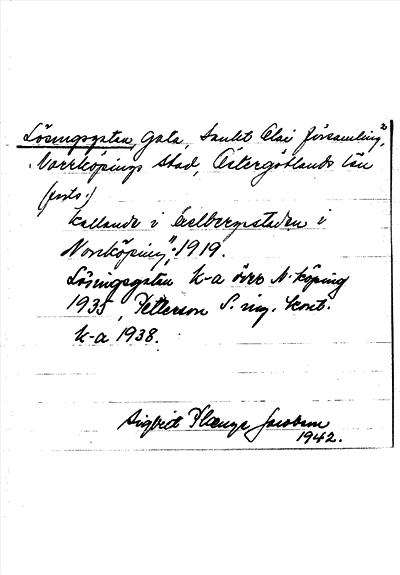 Lösingsgatan, Gata, Sankt Olai församling, 2
Norrköpings stad, Östergötlands län
(forts.)
kallande i Oxelbergsstaden i
Norrköping", 1919.
Lösingsgatan k-a över N-köping
1935, Petterson S. ing. kont.
k-a 1938.
Sigfrid Jacobson
1942.